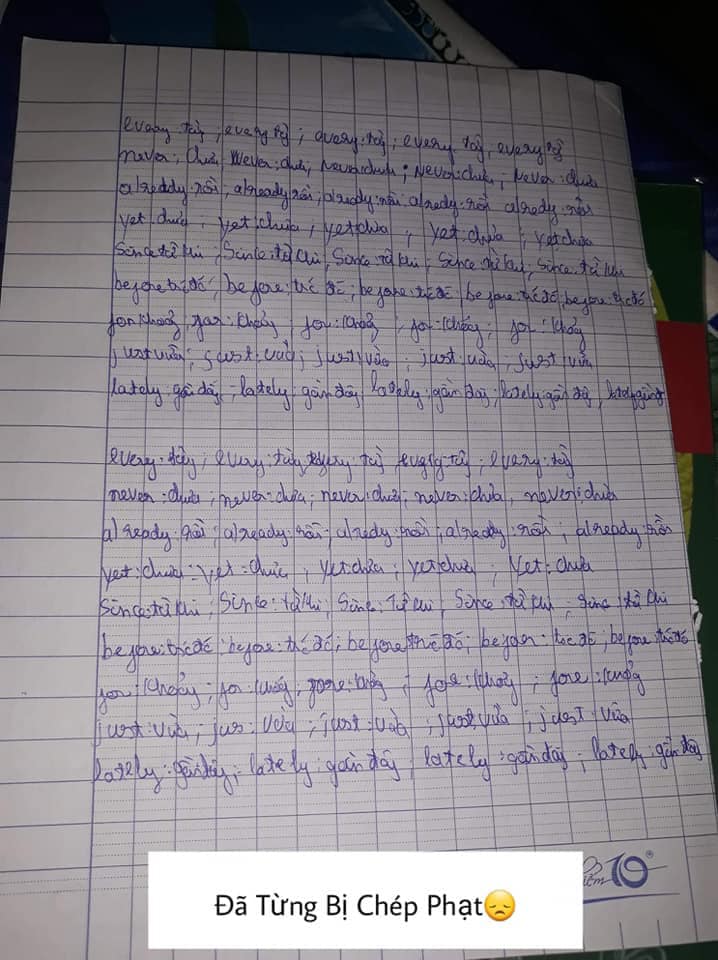 every : từ ; every từ ; every : từ ; every từ, every từ
never ; chưa, Never : chưa, Never : chưa ; Never : chưa ; Never : chưa
alreddy : rồi, already rồi, already : rồi already : rồi already : rồi
yet chưa ; yet : chưa, yet chưa ; yet : chưa ; yet chưa
Since từ khi ; Since : từ khi, Since từ khi ; Since từ khi, Since từ khi
before trước đó, before : trước đó ; before trước đó before trước đó, before trước đó
for khoảng for : khoảng ; for : khoảng ; for : khoảng ; for : khoảng
just vừa ; just : vừa ; just vừa ; just vừa ; just vừa
lately gần đây ; lately gần đây lately gần đây, lately gần đây,
every : từ ; every từ, every từ every từ ; every : từ
never : chưa ; never : chưa ; never : chưa ; never : chưa, never : chưa
already rồi : already rồi ; already rồi ; already : rồi ; already rồi
yet : chưa : yet : chưa ; yet chưa ; yet chưa ; yet : chưa
Since từ khi ; Since : từ khi ; Sinc : từ khi, Since từ khi ; Sinc từ khi
before : trước đó : before : trước đó ; before trước đó ; : trước đó, before trước đó
for : khoảng ; for : khoảng, fore : khoảng ; fore : khoảng ; fore : khoảng
just : vừa ; jus : vừa ; just : vừa ; just vừa ; just vừa
lately : gần đây ; lately : gần đây, lately : gần đây ; lately gần đây
điểm 10
Đã Từng Bị Chép Phạt😞